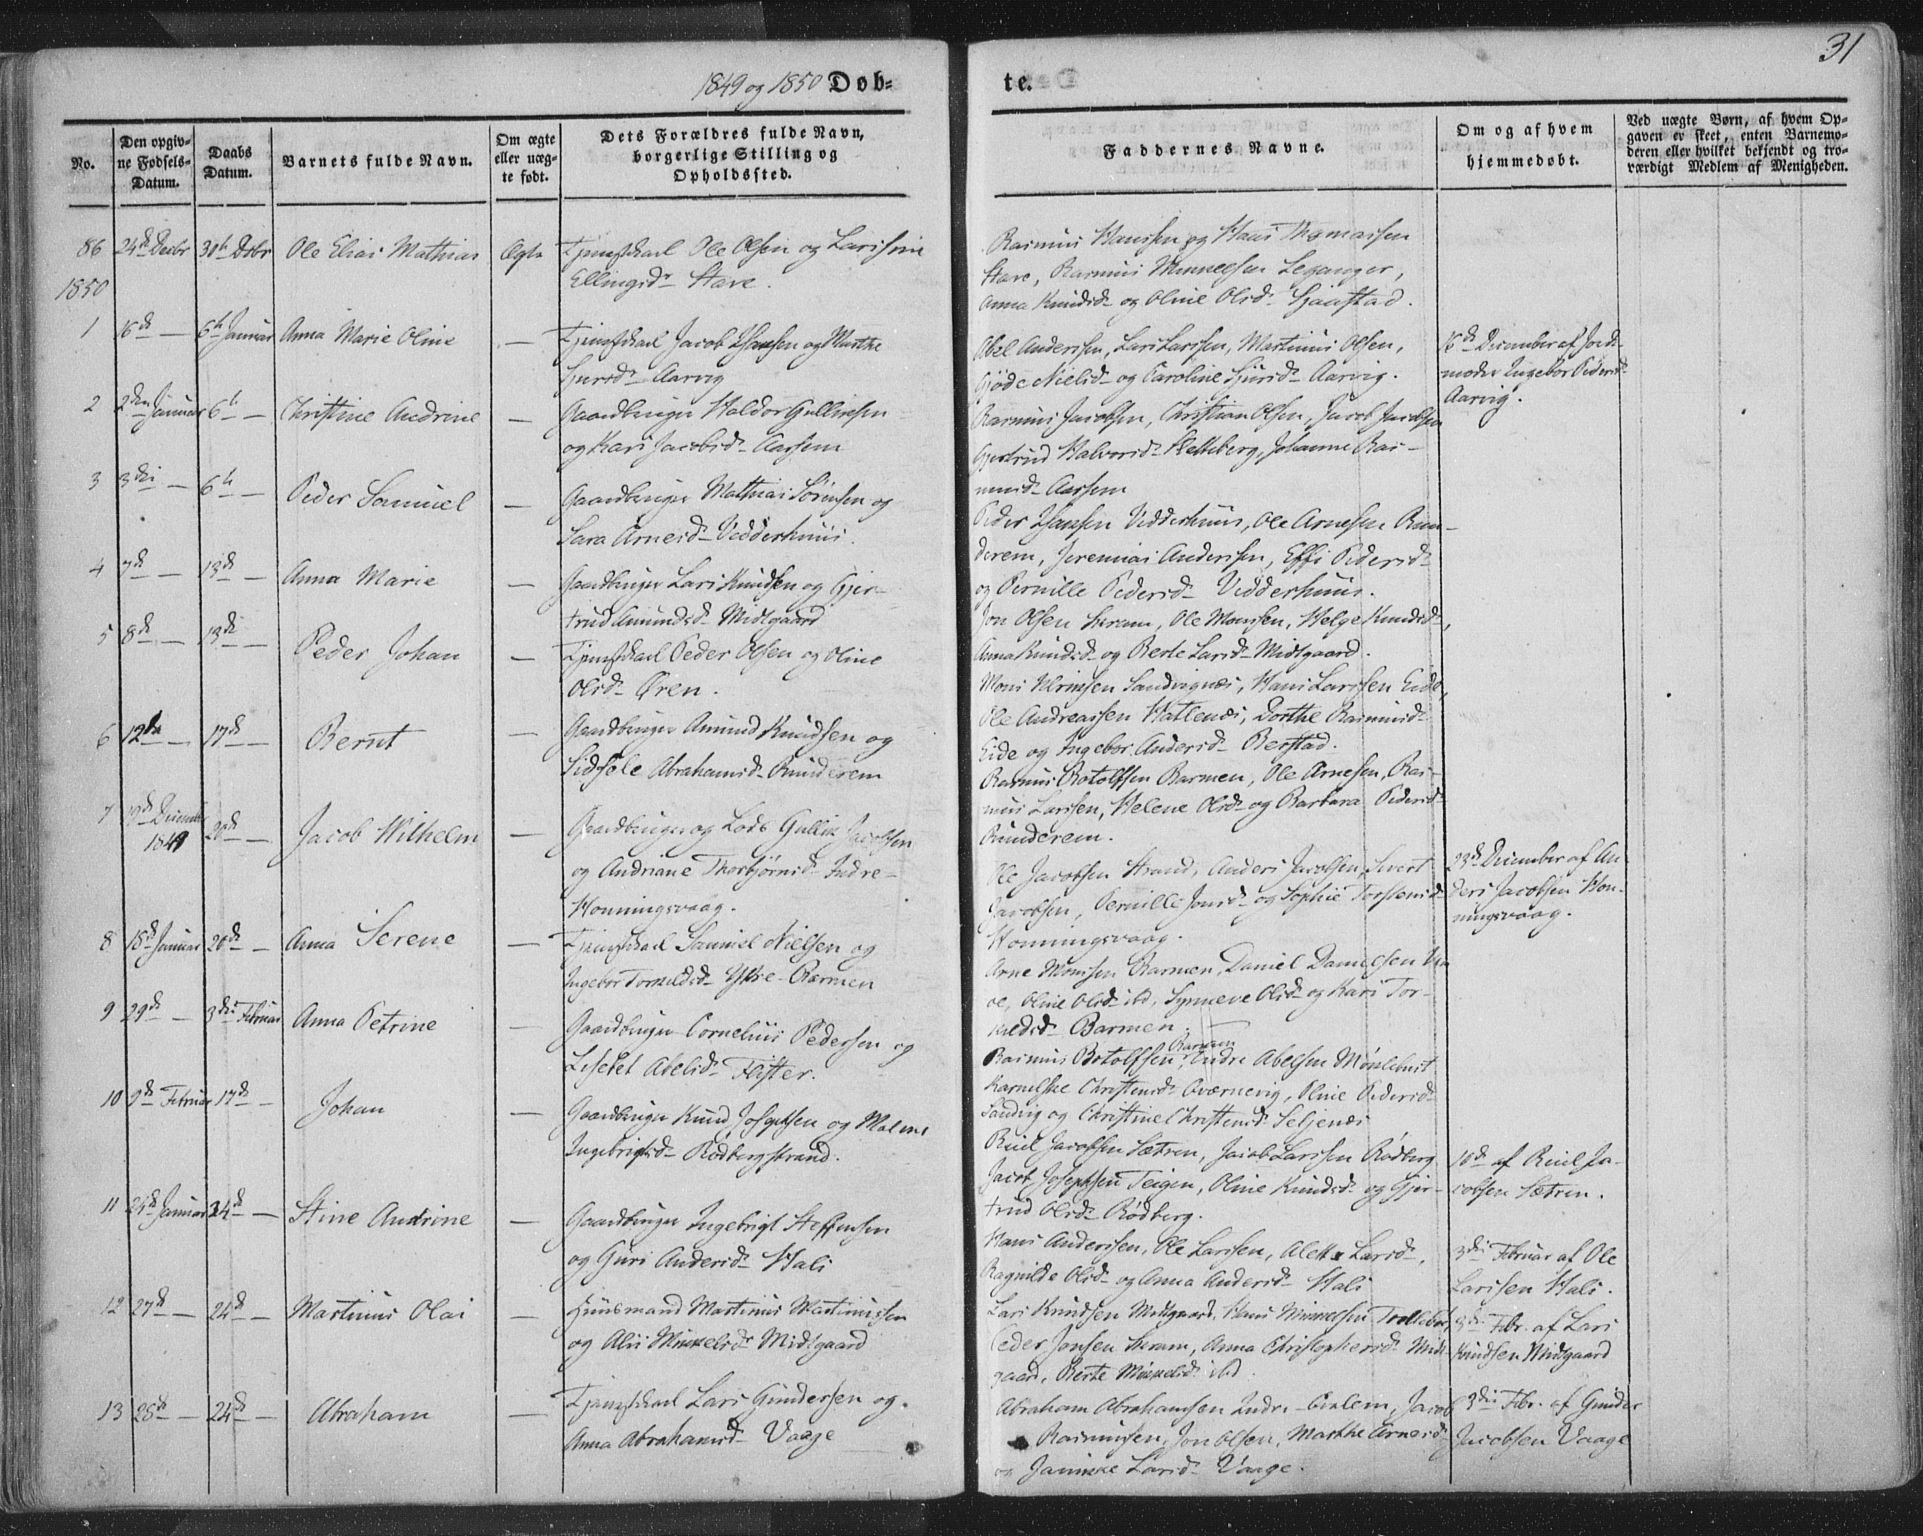 31
1849 og 1850 Døb-
te.
No.
Den opgiv-
ne Fødsels-
Datum.
Daabs
Datum.
Barnets fulde Navn.
Om ægte
eller uæg-
te født.
Dets Forældres fulde Navn,
borgerlige Stilling og
Opholdssted.
Faddernes Navne.
Om og af hvem
hjemmedøbt.
Ved uægte Børn, af hvem Op-
gaven er skeet, enten Barnemo-
deren eller hvilket bekjendt og tro-
værdigt Medlem af Menigheden.
86 24de Decbr 30te Decbr Ole Elias Mathias Ægte Ole Olsen og
Ellingsd. Stave.
Rasmus Hanssen og Hans Thomassen
Stave, Rasmus Monnelsen Leganger,
Anna Knudsd. og Oline Olsd.
1850
1 16de — 6te Januar Anna Marie Oline — Jacob Hansen og Marthe
Sjursd. Aarvig
Abel Anderssen, Lars Larssen, Martinus Olsen,
Gjøde Nielsd. og Caroline Sjursd. Aarvig.
16de December af Jorde-
moder Ingebor Pedersd.
Aarvig.
2 2den Januar 6te — Christine Andrine — Gaardbruger Haldor Gulliksen
og Kari Jacobsd. Aarsem
Rasmus Jacobsen, Christian Olsen, Jacob Jacobsen
Gjertrud Halvorsd. Johanne Ras-
musd. Aarsem
3 3die — 6te — Peder Samuel — Gaardbruger Mathias Sørensen og
Sara Arnesd. Vedderhuus.
Peder Hansen Vedderhuus, Ole Arnesen Run-
derem, Jeremias Andersen, Effi Pedersd.
og Pernille Pedersd. Vedderhuus.
4 7de — 13de — Anna Marie — Gaardbruger Lars Knudsen og Gjer-
trud Amundsd. Midtgaard
Jon Olsen Skram, Ole Monsen, Helge Knudsd.,
Anna Knudsd. og Berte Larsd. Midtgaard.
5 8de — 13de — Peder Johan — Peder Olsen og Oline
Olsd. Øren.
Mons Sandvignæs, Hans Larssen Eide,
Ole Andreassen Hatlenæs, Dorthe Rasmusd.
Eide og Ingebor Andersd. Berstad.
6 12te — 17de — Bernt — Gaardbruger Amund Knudsen og
Sidsele Abrahamsd. Runderem
Rasmus Botolfsen Barmen, Ole Arnesen, Ras-
mus Larssen, Helene Olsd. og Barbara Pedersd.
Runderem.
7 19de December
1849 20de — Jacob Wilhelm — Gaardbruger og Lods Gullik Jacobsen
og Andriane Thorbjørnsd. Indre-
Honningsvaag.
Ole Jacobsen Strand, Anders Jacobsen, Sivert
Jacobsen, Pernille Jonsd. og Sophie Torstensd.
Honningsvaag.
23de December af An-
ders Jacobsen Hon-
ningsvaag.
8 15de Januar 20de — Anna Serene — Samuel Nielsen og
Ingebor Torkildsd. Ytre-Barmen
Arne Monsen Barmen, Daniel Danielsen
oe, Oline Olsd. ibd, Synneve Olsd. og Kari Tor-
kildsd. Barmen.
9 29de — 3die Februar Anna Petrine — Gaardbruger Cornelius Pedersen og
Lisebet Abelsd. Flister.
Barmen
Rasmus Botolfsen, Endre Abelsen Mønlebust
Karnelske Christensd. Qværnevig, Oline Pedersd.
Sandvig og Christine Christensd. Seljenæs
10 9de Februar 17de — Johan — Gaardbruger Knud Josephsen og Malene
Ingebrigtsd. Rødbergstrand.
Jacobsen Sætren, Jacob Larssen Rødberg
Jacob Josephsen Teigen, Oline Knudsd. og Gjer-
trud Olsd. Rødberg.
10de af Ja-
cobsen Sætren.
11 26de Januar 24de — Stine Andrine — Gaardbruger Ingebrigt Steffensen
og Guri Andersd. Hals
Hans Anderssen, Ole Larssen, Alette Larsd.,
Ragnilde Olsd. og Anna Andersd. Hals
3die Februar af Ole
Larssen Hals.
12 27de — 24de — Martinus Olai — Huusmand Martinus Martinussen
og Alis Minkelsd. Midtgaard
Lars Knudsen Midtgaard, Hans Minkelsen
Peder Jonsen Skram, Anna Christophersd. Midt-
gaard, Berte Minkelsd. ibd.
3die Febr. af Lars
Knudsen Midtgaard
13 28de — 24de — Abraham — Lars Gundersen og
Anna Abrahamsd. Vaage
Abraham Abrahamsen Indre-Qvalem, Jacob
Rasmussen, Jon Olsen, Marthe Arnesd.
og Jannike Larsd. Vaage.
3die Febr. af Gunder
Jacobsen Vaage